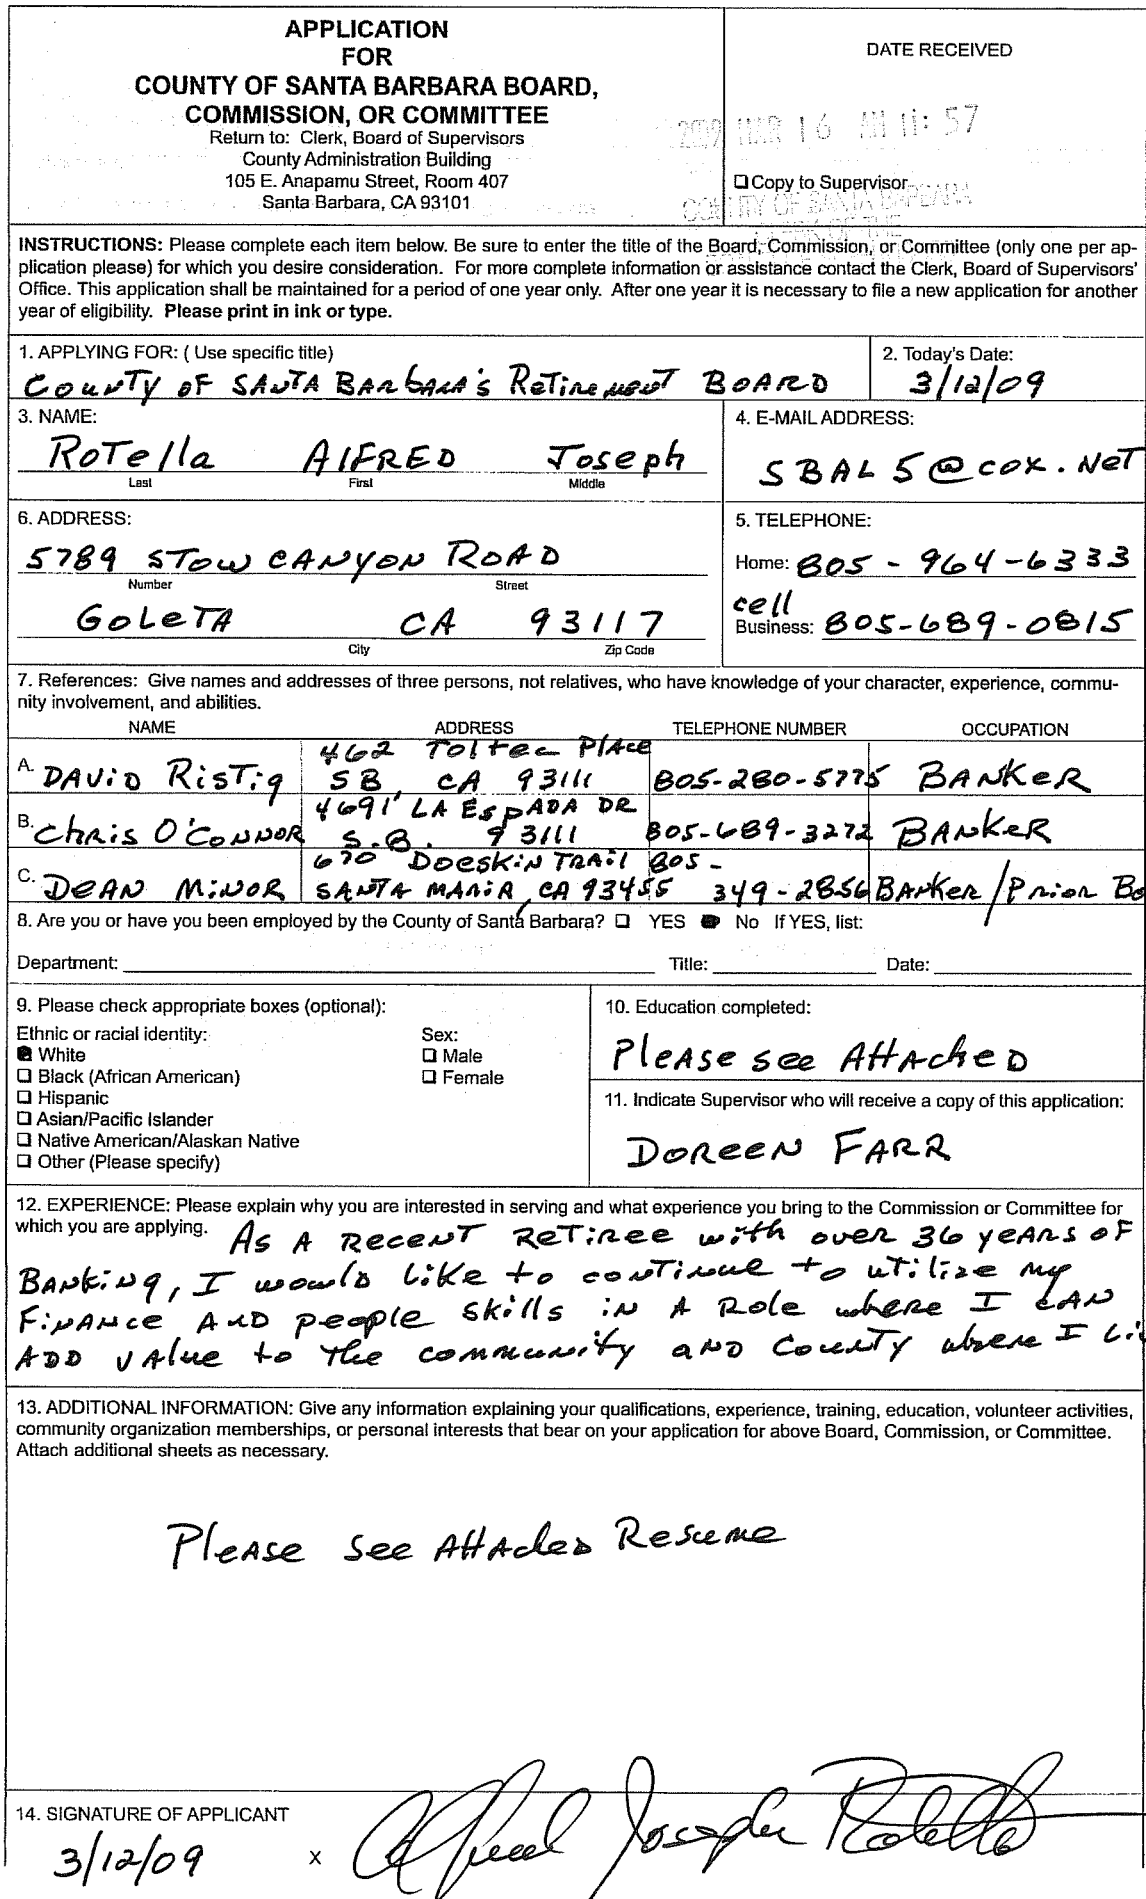 APPLICATION
FOR
COUNTY OF SANTA BARBARA BOARD,
COMMISSION, OR COMMITTEE
Return to: Clerk, Board of Supervisors
County Administration Building
105 E. Anapamu Street, Room 407
Santa Barbara, CA 93101
DATE RECEIVED
2009 MAR 16 AM 11:57
Copy to Supervisor
COUNTY OF SANTA BARBARA
CLERK OF THE
INSTRUCTIONS: Please complete each item below. Be sure to enter the title of the Board, Commission, or Committee (only one per ap-
plication please) for which you desire consideration. For more complete information or assistance contact the Clerk, Board of Supervisors'
Office. This application shall be maintained for a period of one year only. After one year it is necessary to file a new application for another
year of eligibility. Please print in ink or type.
1. APPLYING FOR: ( Use specific title)
County of Santa Barbara's Retirement Board
2. Today's Date:
3/12/09
3. NAME:
Rotella Alfred Joseph
Last First Middle
4. E-MAIL ADDRESS:
SBAL5@cox.net
6. ADDRESS:
5789 Stow Canyon Road
Number Street
Goleta CA 93117
City Zip Code
5. TELEPHONE:
Home: 805-964-6333
cell
Business: 805-689-0815
7. References: Give names and addresses of three persons, not relatives, who have knowledge of your character, experience, commu-
nity involvement, and abilities.
NAME ADDRESS TELEPHONE NUMBER OCCUPATION
462 Toltec Place
A. David Ristig SB, CA 93111 805-280-5775 Banker
4691 La Espada Dr
B. Chris O'Connor S.B. 93111 805-689-3272 Banker
670 Doeskin Trail 805-
C. Dean Minor Santa Maria, CA 93455 349-2856 Banker/Prior Bo
8. Are you or have you been employed by the County of Santa Barbara? YES No If YES, list:
Department: Title: Date:
9. Please check appropriate boxes (optional):
Ethnic or racial identity:
White
Black (African American)
Hispanic
Asian/Pacific Islander
Native American/Alaskan Native
Other (Please specify)
Sex:
Male
Female
10. Education completed:
Please see Attached
11. Indicate Supervisor who will receive a copy of this application:
Doreen Farr
12. EXPERIENCE: Please explain why you are interested in serving and what experience you bring to the Commission or Committee for
which you are applying. As a recent retiree with over 36 years of
Banking, I would like to continue to utilize my
Finance and people skills in a role where I can
add value to the community and County where I li
13. ADDITIONAL INFORMATION: Give any information explaining your qualifications, experience, training, education, volunteer activities,
community organization memberships, or personal interests that bear on your application for above Board, Commission, or Committee.
Attach additional sheets as necessary.
Please see Attached Resume
14. SIGNATURE OF APPLICANT
3/12/09 X Alfred Joseph Rotella